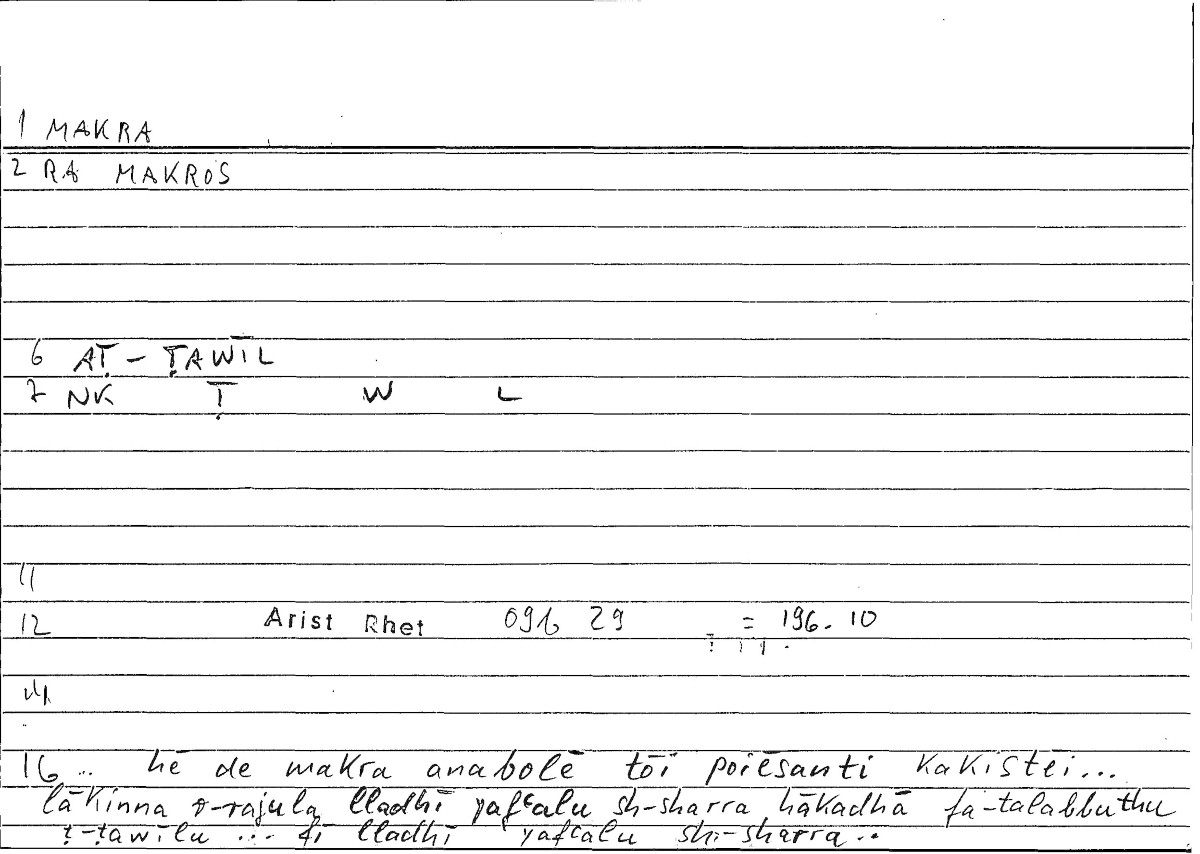 1 MAKRA
2 RA MAKROS
6 AṬ-ṬAWĪL
7 NK Ṭ W L
11
12 Arist Rhet 09b 29 = 196.10
14
16 .. hē de makra anabolē tōi poiēsanti kakistēi...
lākinna r-rajula lladhī yafʿalu sh-sharra hākadhā fa-talabbuthu
ṭ-ṭawīlu ... fī lladhī yafʿalu sh-sharra..